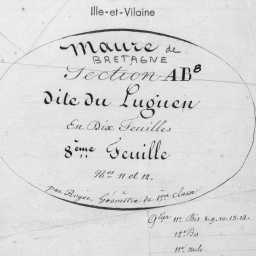 Ille-et-Vilaine
Maure de
BRETAGNE
Section AB8
dite du Luguen
En Dix Feuilles
8ème Feuille
Nos 11 et 12.
par Géomètre de 1ère Classe
11e Bis
12e Bis
11e